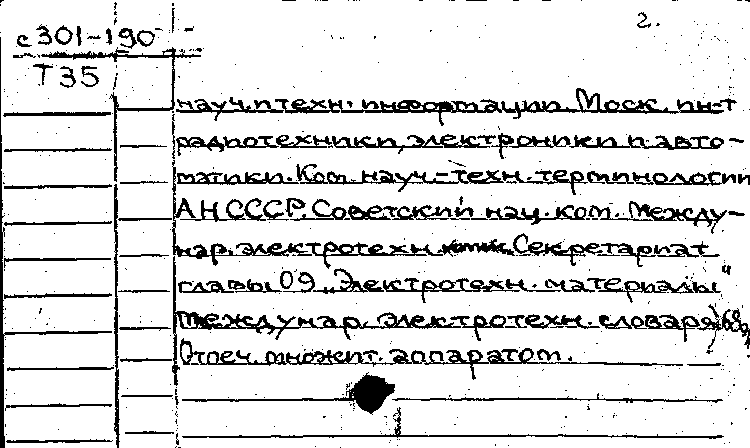 2.
с301-190
Т35
науч. и техн. информации. Моск. ин-т
радиотехники, электроники и авто-
матики. Ком. науч.-техн. терминологии
АН СССР. Советский нац. ком. Между-
нар. электротехн. Секретариат
главы 09 „Электротехн. материалы"
Междунар. электротехн. словаря)
Отпеч. множит. аппаратом.